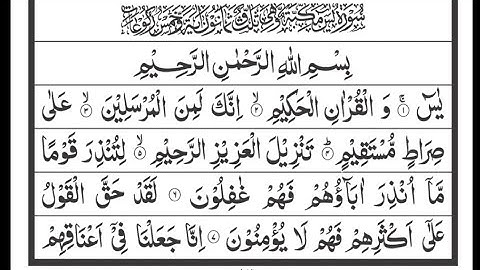 سُوْرَةُ يٰسٓ مَكِّيَّةٌ وَّهِيَ ثَلٰثٌ وَّثَمَانُوْنَ اٰيَةً وَّخَمْسُ رُكُوْعَاتٍ
بِسْمِ اللهِ الرَّحْمٰنِ الرَّحِيْمِ
يٰسٓ ۝۱ وَ الْقُرْاٰنِ الْحَكِيْمِ ۝۲ اِنَّكَ لَمِنَ الْمُرْسَلِيْنَ ۝۳ عَلٰى
صِرَاطٍ مُّسْتَقِيْمٍ ۝۴ تَنْزِيْلَ الْعَزِيْزِ الرَّحِيْمِ ۝۵ لِتُنْذِرَ قَوْمًا
مَّاۤ اُنْذِرَ اٰبَآؤُهُمْ فَهُمْ غٰفِلُوْنَ ۝۶ لَقَدْ حَقَّ الْقَوْلُ
عَلٰۤى اَكْثَرِهِمْ فَهُمْ لَا يُؤْمِنُوْنَ ۝۷ اِنَّا جَعَلْنَا فِيْۤ اَعْنَاقِهِمْ